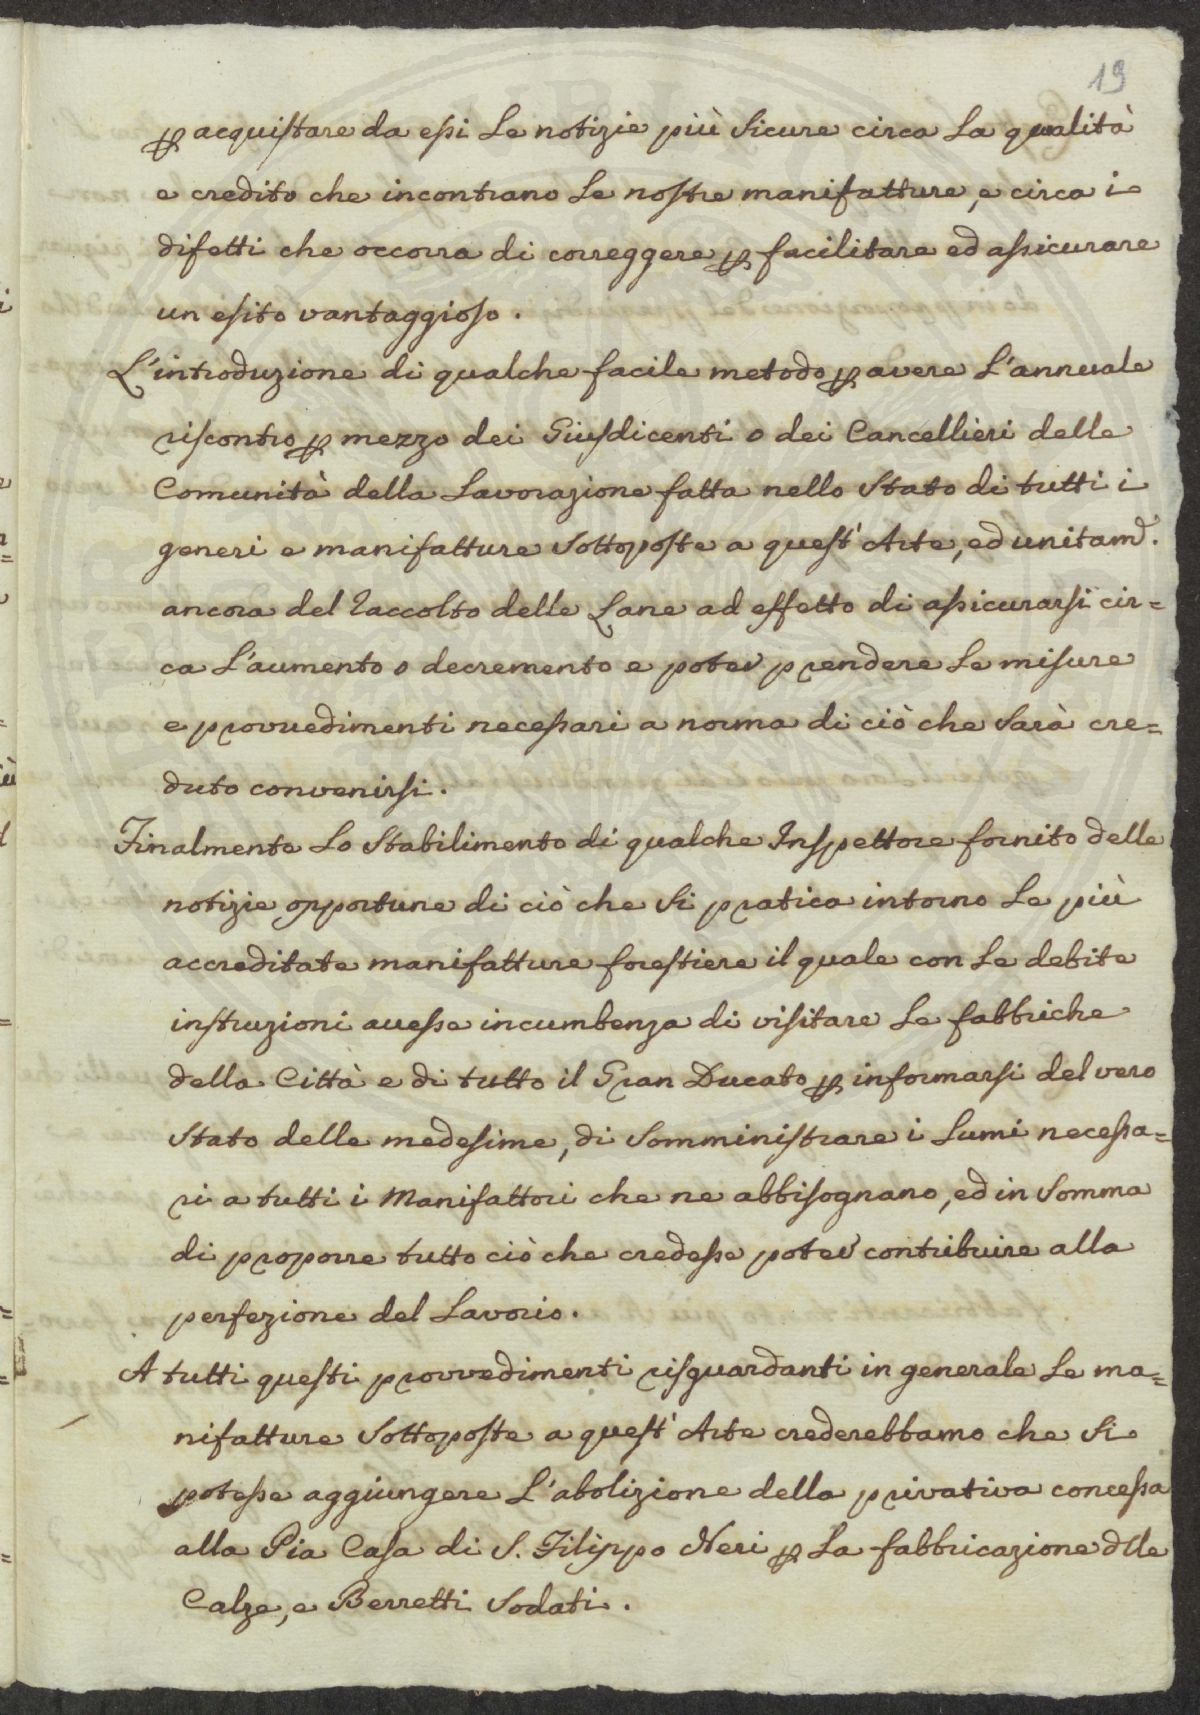 19
ꝑ acquistare da essi le notizie più sicure circa la qualità
e credito che incontrano le nostre manifatture, e circa i
difetti che occorra di correggere ꝑ facilitare ed assicurare
un esito vantaggioso.
L'introduzione di qualche facile metodo ꝑ avere l'annuale
riscontro ꝑ mezzo dei Giusdicenti o dei Cancellieri delle
Comunità della Lavorazione fatta nello Stato di tutti i
generi e manifatture sottoposte a quest'Arte, ed unitamᵉ.
ancora del Raccolto delle Lane ad effetto di assicurarsi cir=
ca l'aumento o decremento e poter prendere le misure
e provvedimenti necessari a norma di ciò che sarà cre=
duto convenirsi.
Finalmente lo stabilimento di qualche Inspettore fornito delle
notizie opportune di ciò che si pratica intorno le più
accreditate manifatture forestiere il quale con le debite
instruzioni avesse incumbenza di visitare le fabbriche
della Città e di tutto il Gran Ducato ꝑ informarsi del vero
stato delle medesime, di somministrare i lumi necessa=
ri a tutti i Manifattori che ne abbisognano, ed in somma
di proporre tutto ciò che credesse poter contribuire alla
perfezione del Lavorio.
A tutti questi provvedimenti risguardanti in generale le ma=
nifatture sottoposte a quest'Arte crederebbamo che si
potesse aggiungere l'abolizione della privativa concessa
alla Pia Casa di S. Filippo Neri ꝑ la fabbricazione dlle
Calze, e Berretti sodati.